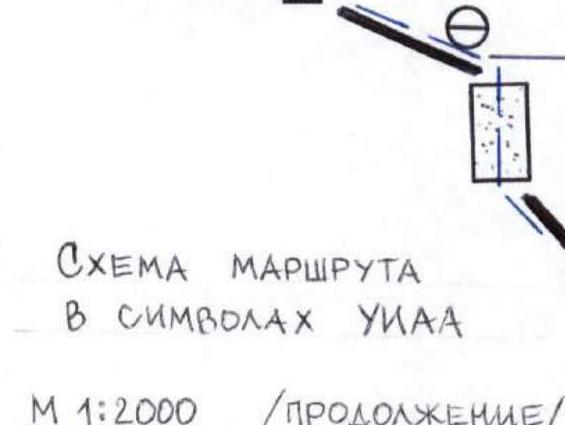 СХЕМА МАРШРУТА
В СИМВОЛАХ УИАА
М 1:2000 /ПРОДОЛЖЕНИЕ/